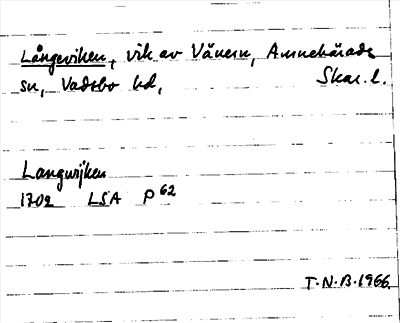 Långeviken, vik av Vänern, Amnehärads
sn, Vadsbo hd, Skar. l.
Langwijken
1702 LSA P 62
T.N.B. 1966